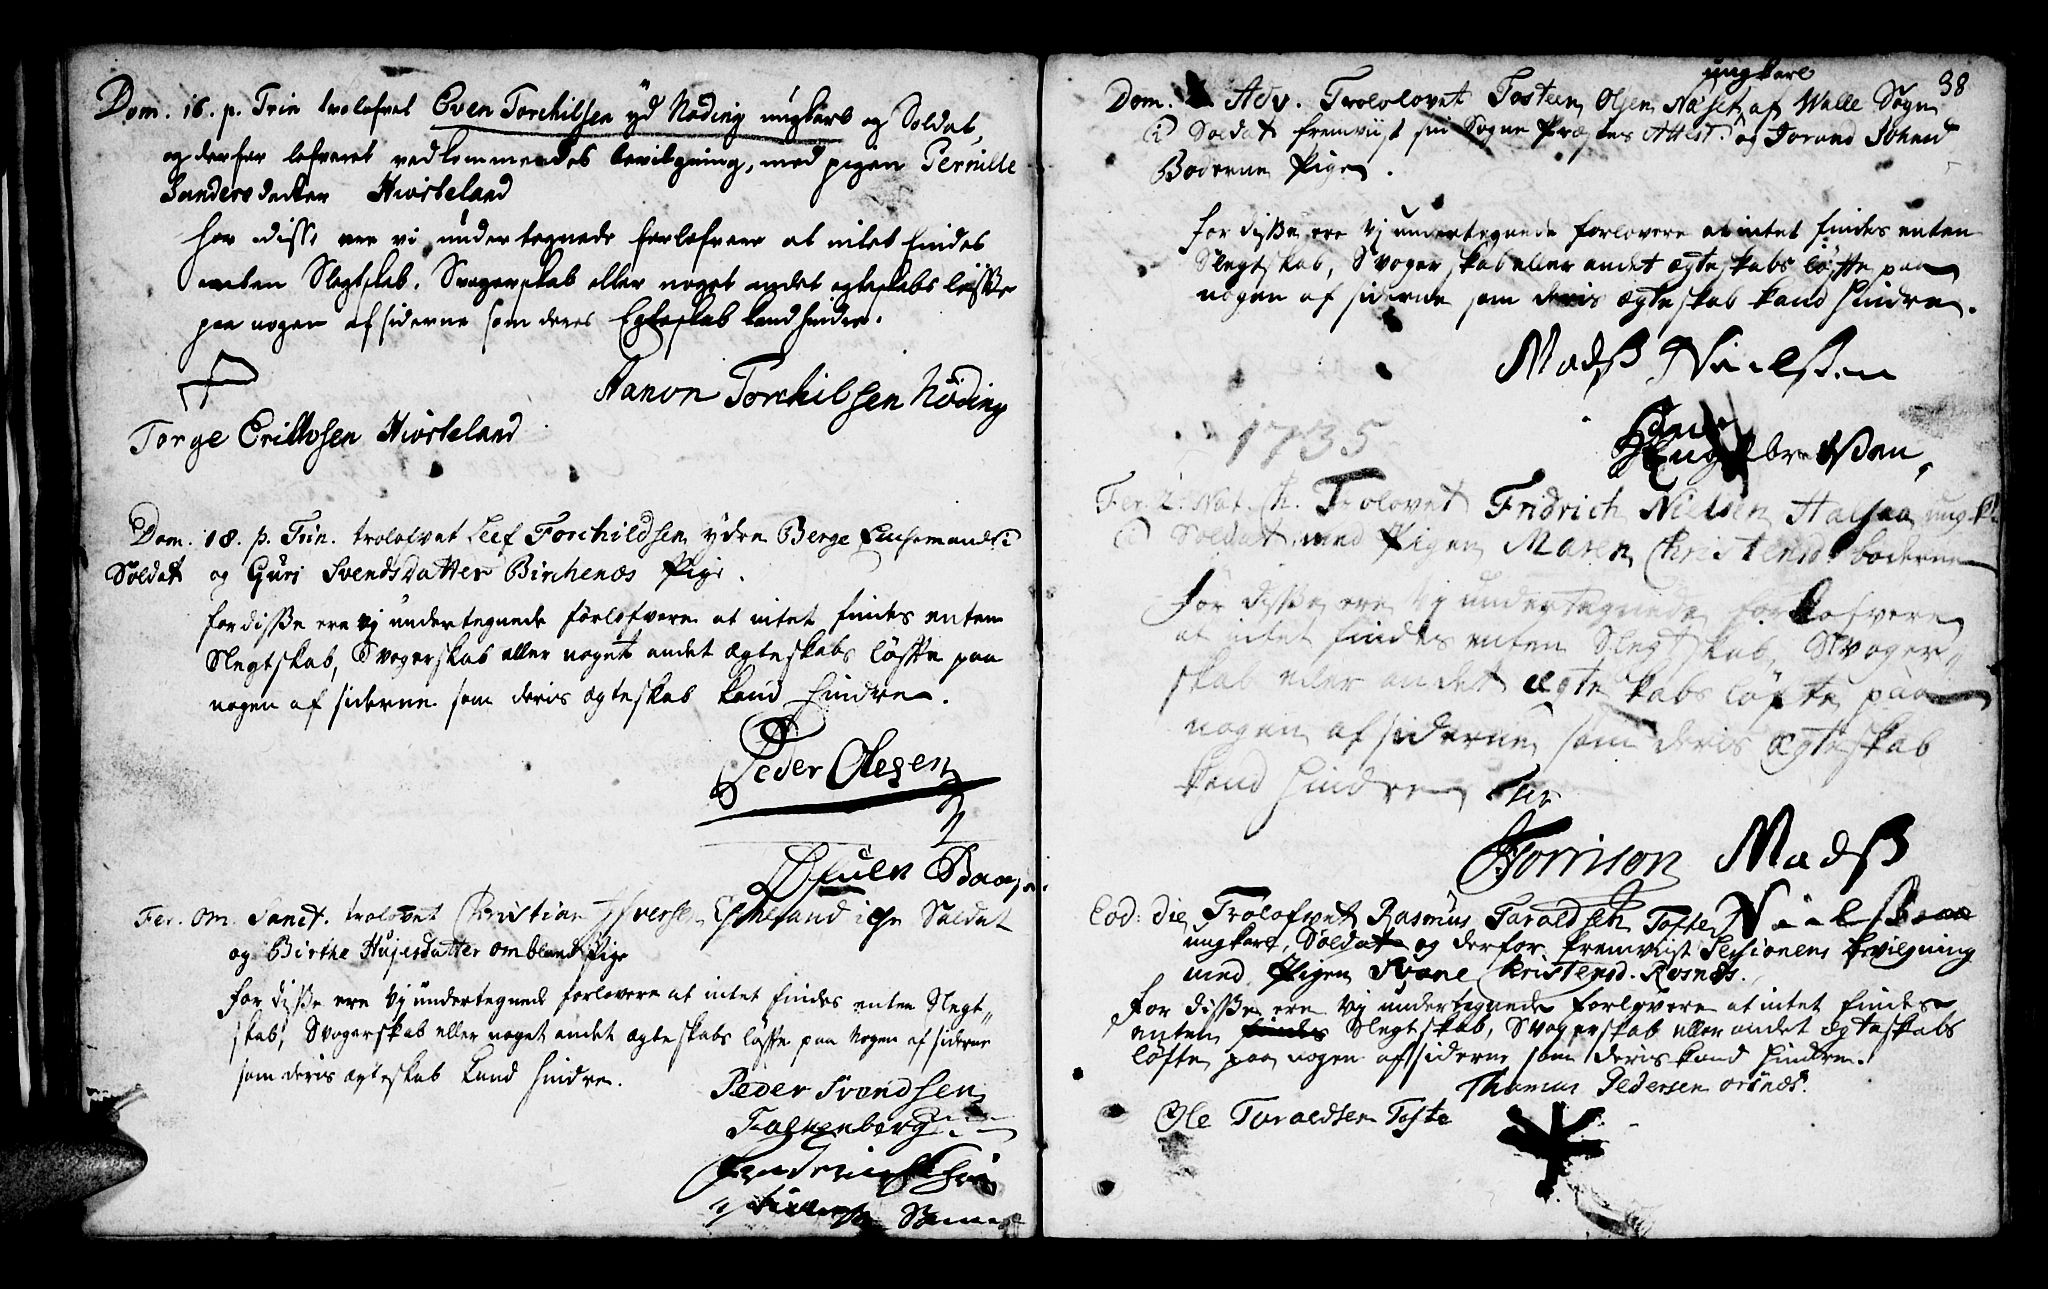 Dom. 16. p. Trin trolofvet Even Torchilsen yd Nöding ungkarl og Soldat,
og derfor lefveret vedkommendes bevilgning, med pigen Pernille
Sandersdatter Hiorteland
for disse ere vi undertegnede forlofvere at intet findes
enten Slegtskab, Svogerskab eller noget andet egteskabs løfte
paa nogen af siderne som deres Egteskab kand hindre.
Aanon Torchilsen Nöding
Torge Erichsen Hiorteland
Dom. 18. p. Trin. trolofvet Leef Torchildsen ydre Berge Enchemand
Soldat og Guri Svendsdatter Birchenæs Pige.
for diße ere vj undertegnede forlofvere at intet findes enten
Slegtskab, Svogerskab eller noget andet ægteskabs løffte paa
nogen af siderne som deris ægteskab kand hindre.
Peder Olesen
Fer. Om. Sanct. trolovet Christian Iversen Soldat
og Birthe Omland Pige
for diße ere vj undertegnede forlovere at intet findes enten Slegt,,
skab, Svogerskab eller noget andet ægteskabs løffte paa nogen af siderne
som deris ægteskab kand hindre.
Peder Svendsen
Falkenberg
38
ungkarl
Dom. Adv. Trolovet Tosten Olsen Næset af Walle Sogn
Soldat fremviist sin Sogne Præstes Attest. og Jorand
Boderne Pige.
for diße ere vj undertegnede forlovere at intet findes enten
Slegtskab, Svogerskab eller andet ægteskabs løffte paa
nogen af siderne som deris ægteskab kand hindre.
Madß Nielßen
1735
Engelbretßen
Fer. 2. Nat. Ch. Trolovet Fridrich Nielsen Halsaa ungk.
Soldat med Pigen Maren Christensd. boderne
for diße ere vj undertegnede forlofvere
at intet findes enten Slegtskab, Svoger,,
skab eller andet ægteskabs løfte paa
nogen af siderne som deris ægteskab
kand hindre
Torrison Madß
Nielßen
Eod: die Trolofvet Rasmus Taraldsen Tofte
ungkarl, Soldat og derfor fremviist Sessionens bevilgning
med Pigen Christensd. Rosnæs.
for diße ere vj undertegnede forlovere at intet findes
enten findes Slegtskab, Svogerskab eller andet ægteskabs
løfte paa nogen af siderne som deris kand hindre.
Thomas Pedersen
Ole Taraldsen Tofte